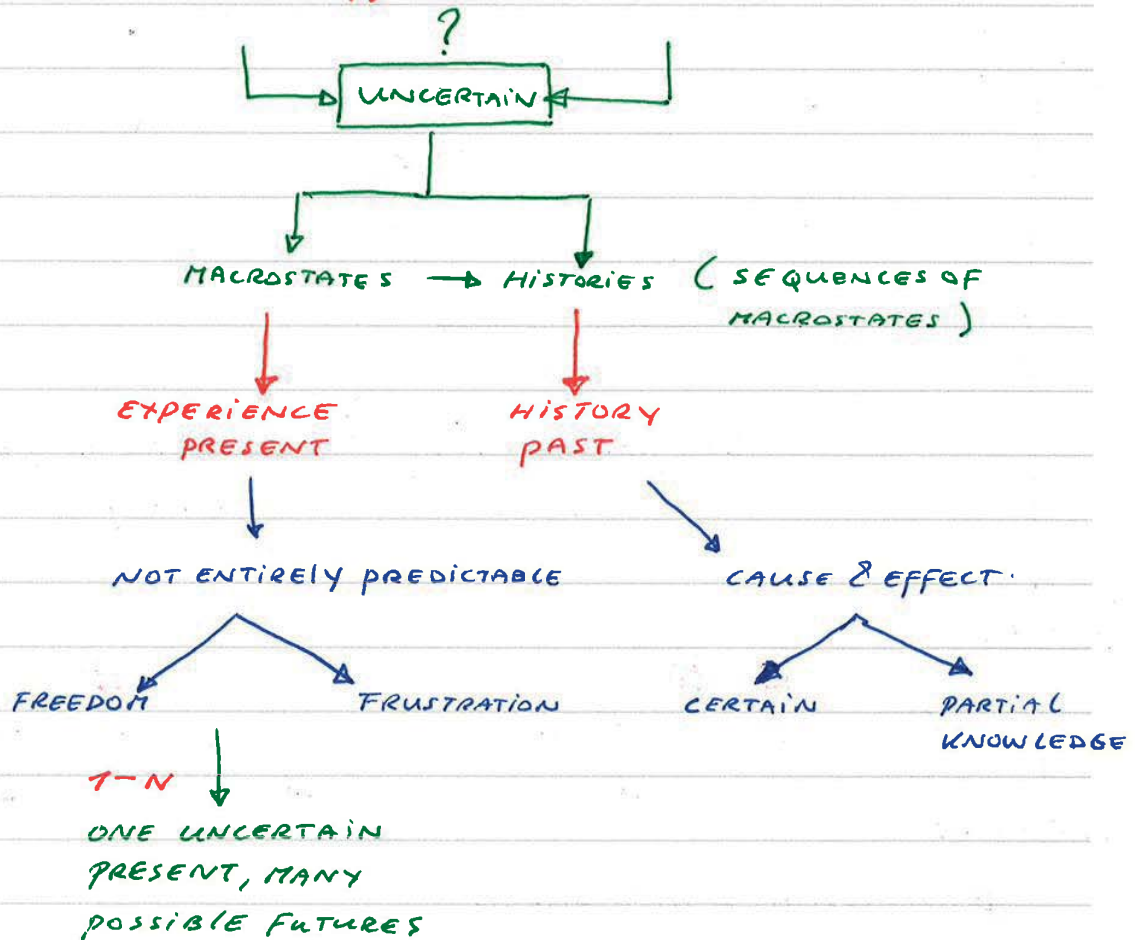 ?
UNCERTAIN
MACROSTATES → HISTORIES (SEQUENCES OF
MACROSTATES)
EXPERIENCE
PRESENT
HISTORY
PAST
NOT ENTIRELY PREDICTABLE
CAUSE & EFFECT.
FREEDOM
FRUSTRATION
CERTAIN
PARTIAL
KNOWLEDGE
1-N
ONE UNCERTAIN
PRESENT, MANY
POSSIBLE FUTURES